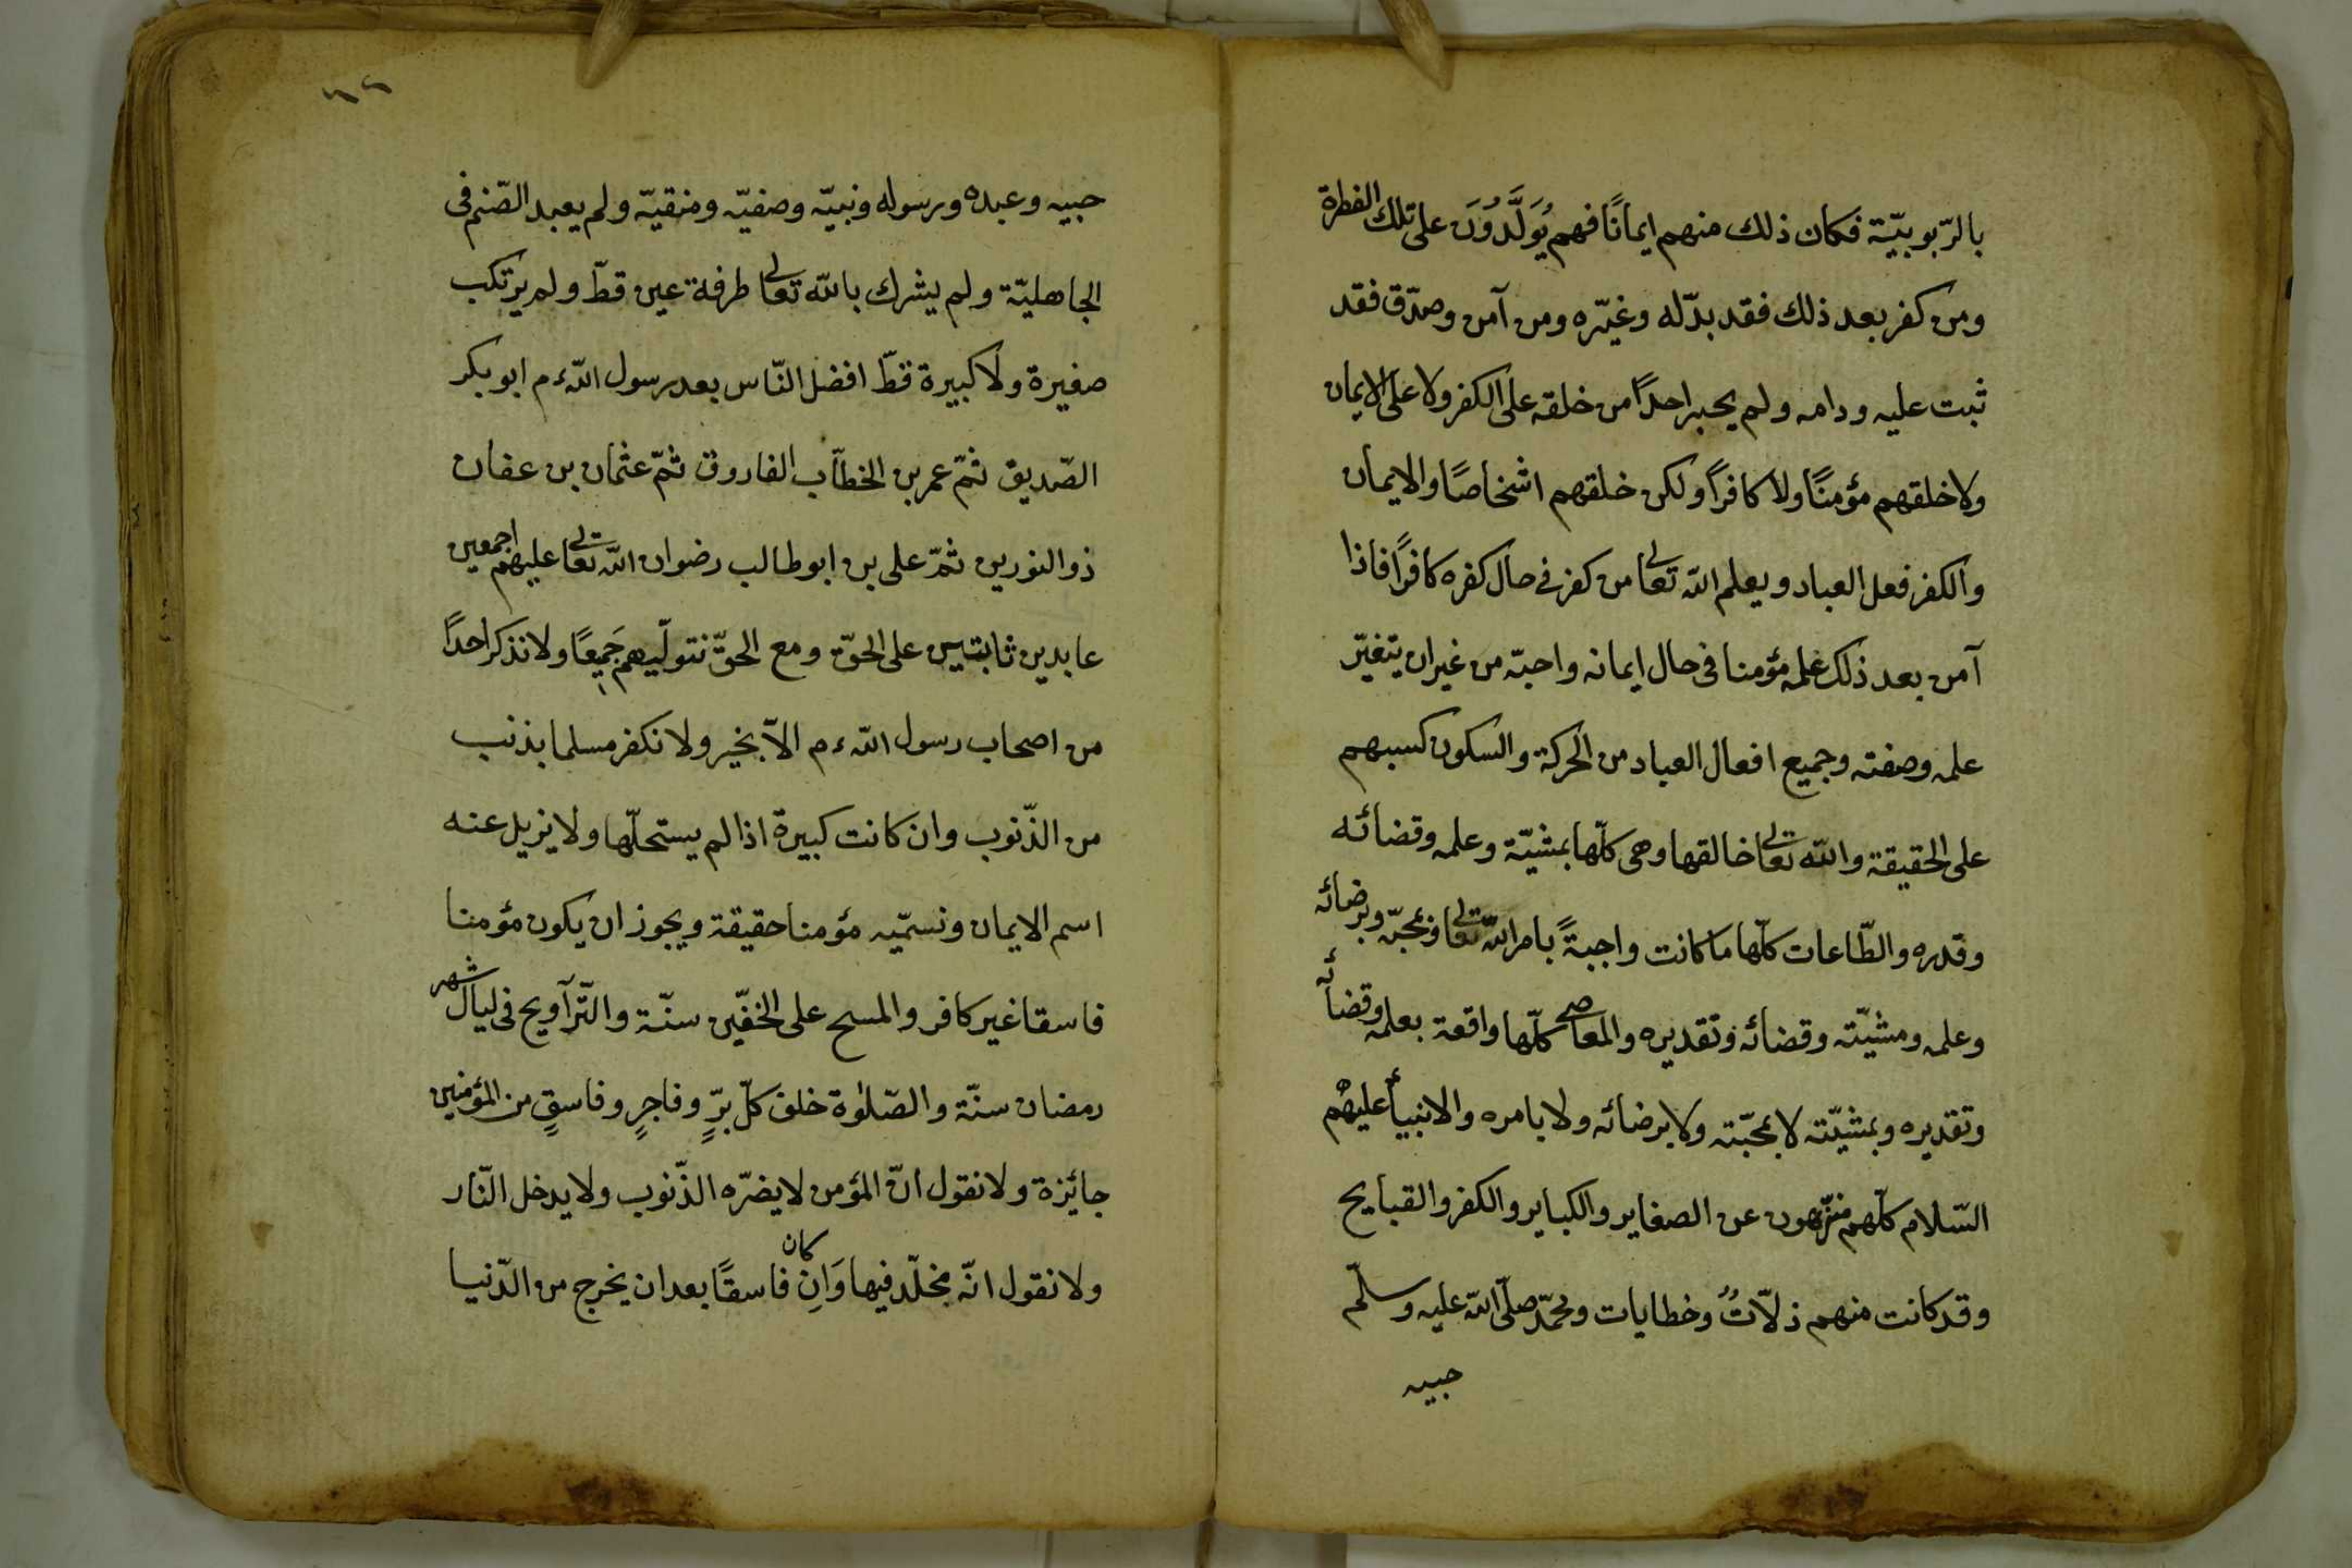 بالرّبوبيّة فكان ذلك منهم ايمانًا فهم يُوَلَّدُوُنَ على تلك الفطرة
ومن كفر بعد ذلك فقد بدّله وغيّره ومن آمن وصدّق فقد
ثبت عليه ودامه ولم يجبر احدًا من خلقه على الكفر ولا على الايمان
ولا خلقهم مؤمنًا ولا كافرًا ولكن خلقهم اشخاصًا والايمان
والكفر فعل العباد ويعلم الله تعالى من كفر فى حال كفره كافرًا فاذا
آمن بعد ذلك علمه مؤمنا فى حال ايمانه واحبّه من غير ان يتغيّر
علمه وصفته وجميع افعال العباد من الحركة والسكون كسبهم
على الحقيقة والله تعالى خالقها وهى كلّها بمشيّة وعلمه وقضائه
وقدره والطّاعات كلّها ما كانت واجبةً بامر الله تعالى وبمحبّه وبرضائه
وعلمه ومشيّته وقضائه وتقديره والمعاصى كلّها واقعة بعلمه وقضائه
وتقديره وبمشيّته لا بمحبّته ولا برضائه ولا بامره والانبياء عليهم
السّلام كلّهم منزّهون عن الصغاير والكباير والكفر والقبايح
وقد كانت منهم ذلاّتُ وخطايات ومحمّد صلّى الله عليه وسلّم
حبيبه
٦٦
حبيبه وعبده ورسوله ونبيّه وصفيّه ومنقيّه ولم يعبد الصّنم فى
الجاهليّة ولم يشرك بالله تعالى طرفة عين قطّ ولم يرتكب
صغيرة ولا كبيرة قطّ افضل النّاس بعد رسول الله ءم ابو بكر
الصّديق ثمّ عمر بن الخطّاب الفاروق ثمّ عثمان بن عفان
ذو النورين ثمّ على بن ابو طالب رضوان الله تعالى عليهم اجمعين
عابدين ثابتين على الحقّ ومع الحقّ نتولّيهم جَمِيعًا ولا نذكر احدًا
من اصحاب رسول الله ءم الاّ بخير ولا نكفر مسلما بذنب
من الذّنوب وان كانت كبيرة اذا لم يستحلّها ولا نزيل عنه
اسم الايمان ونسمّيه مؤمنا حقيقة ويجوز ان يكون مؤمنا
فاسقا غير كافر والمسح على الخفّين سنّة والتّرآويح فى ليال شهر
رمضان سنّة والصّلوٰة خلف كلّ برٍّ وفاجرٍ وفاسقٍ من المؤمنين
جائزة ولا نقول انّ المؤمن لا يضرّه الذّنوب ولا يدخل النّار
ولا نقول انّه مخلّد فيها وَانِ كان فاسقًا بعد ان يخرج من الدّنيا